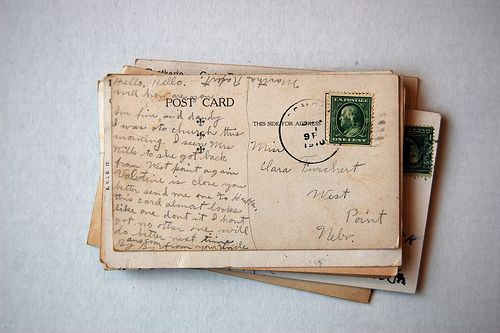 Postkarte
Hello, Hello.
well how are you
POST CARD
Im fine and dandy
I was to church this
morning. I seen Mrs
Mills to she got back
from West point again
Valentine is close you
better send me one to Ha
this card almost looks
like one dont it I hant
got no other one will
do better next time
THIS SIDE FOR ADDRESS
U.S. POSTAGE
ONE CENT
9 P
1910
Miss
Clara
West
Point
Nebr.